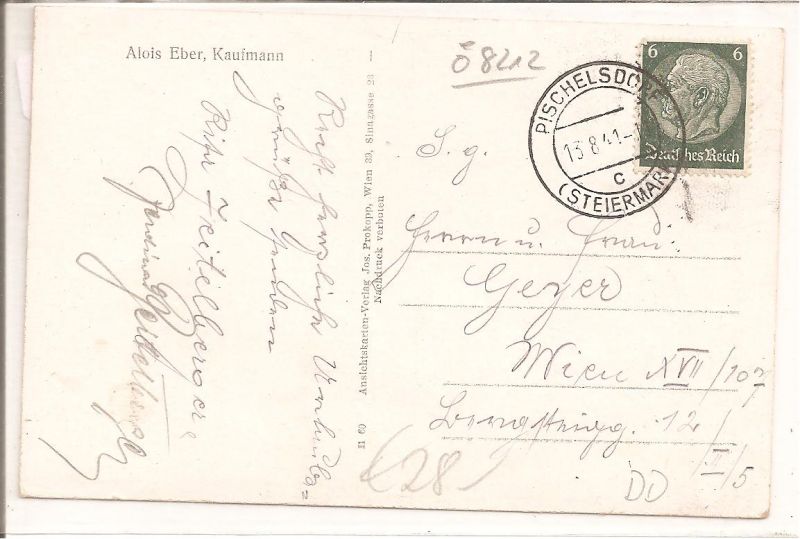 Alois Eber, Kaufmann
Ö 8212
PISCHELSDORF
13.8.41-1
c
(STEIERMARK)
6 6
Deutsches Reich
Recht herzliche Urlaubs=
grüße senden
Ritsi Zeitelberger
Ferdinand Zeitelberger
Ansichtskarten-Verlag Jos. Prokopp, Wien 39, Sinagasse 23 —
Nachdruck verboten
11 60
S. g.
Herrn u. Frau:
Geyer
Wien XVII/107
12/
II/5
(28)
DD